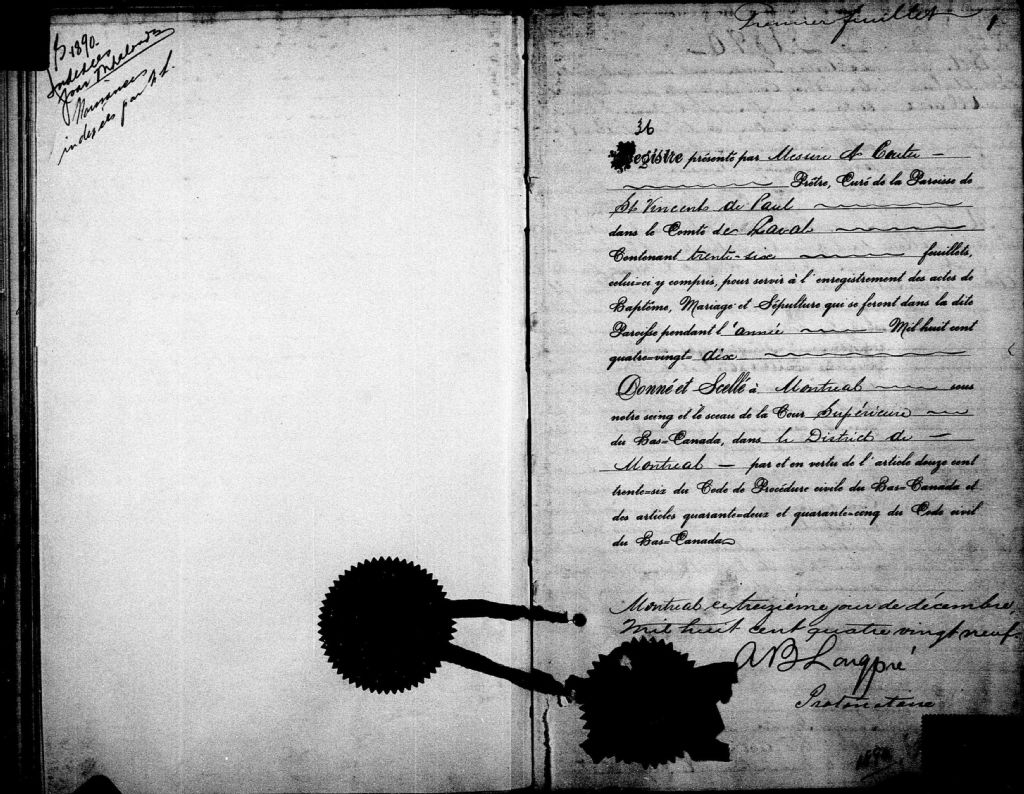 B 1890.
indexées
Normances
indexées par
Premier feuillet 1
36
Registre présenté par Messire A
Prêtre, Curé de la Paroisse de
St Vincent de Paul
dans le Comté de Laval
Contenant trente-six feuillets,
celui-ci y compris, pour servir à l'enregistrement des actes de
Baptême, Mariage et Sépulture qui se feront dans la dite
Paroisse pendant l'année Mil huit cent
quatre-vingt-dix
Donné et Scellé à Montreal sous
notre seing et le sceau de la Cour Supérieure
du Bas-Canada, dans le District de
Montreal par et en vertu de l'article douze cent
trente-six du Code de Procédure civile du Bas-Canada et
des articles quarante-deux et quarante-cinq du Code civil
du Bas-Canada
Montreal ce treizième jour de décembre
Mil huit cent quatre vingt neuf
AB Longpré
Protonotaire
1890